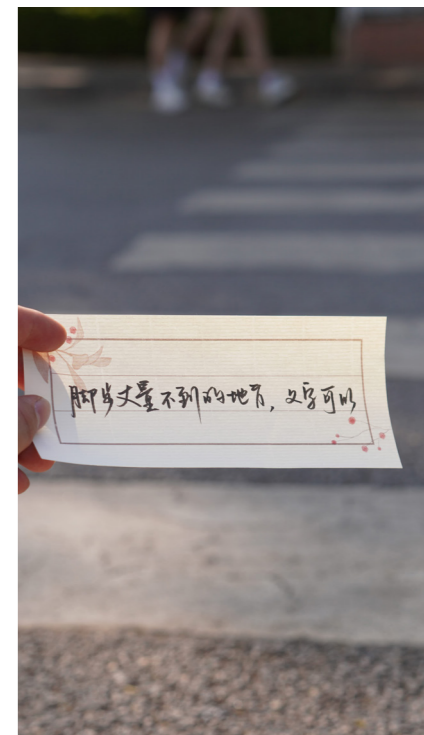 脚步丈量不到的地方，文字可以